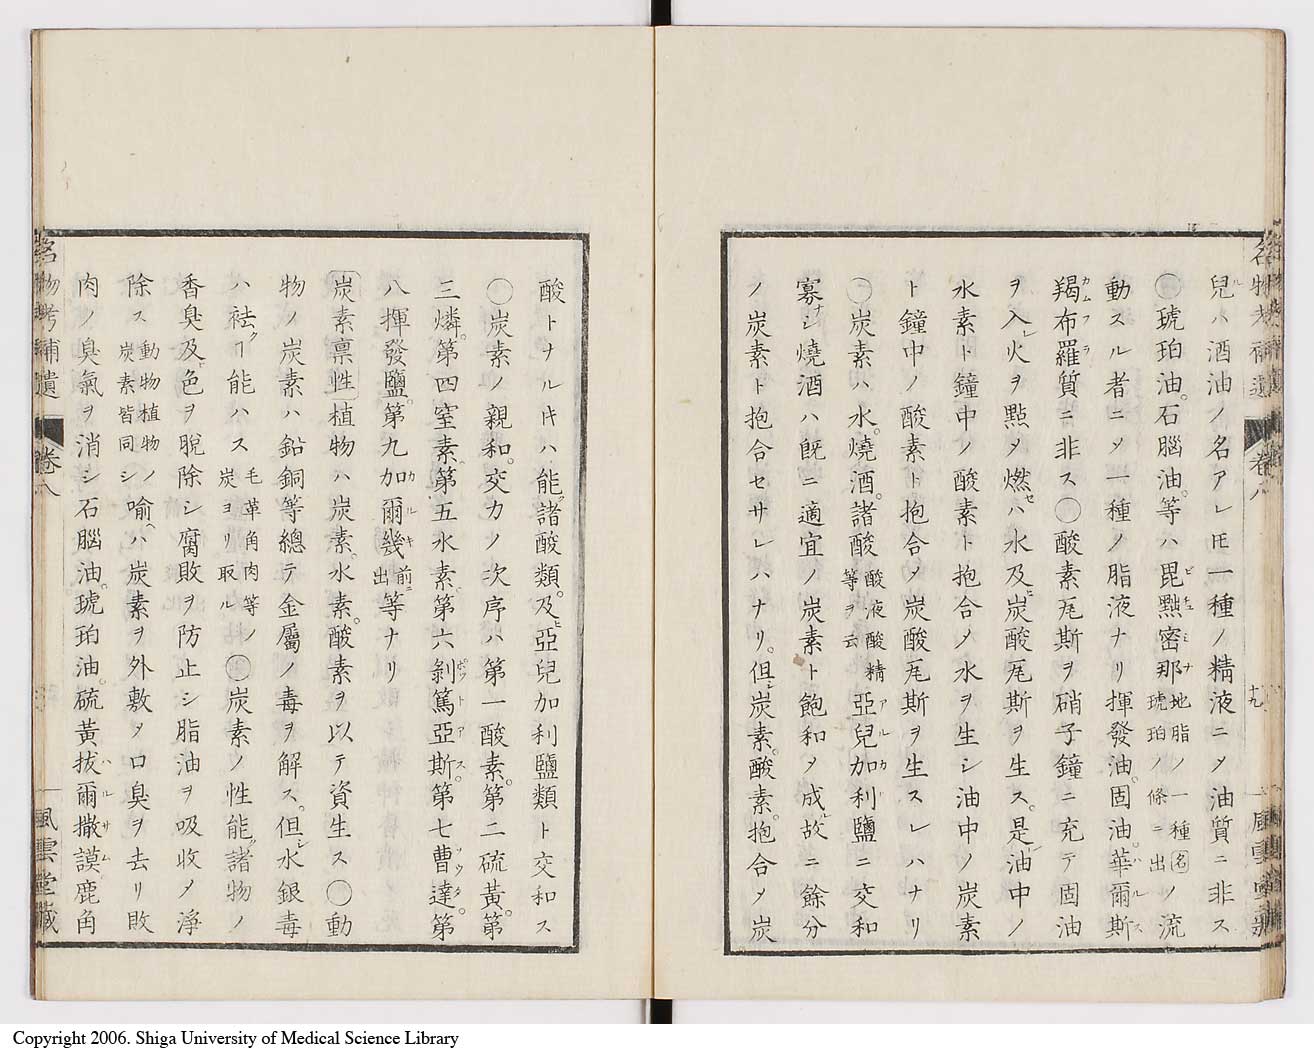 兒ハ酒油ノ名アレ𪜈一種ノ精液ニメ油質ニ非ス
〇琥珀油。石腦油。等ハ毘㸃密那地脂ノ一種名琥珀ノ條ニ出ノ流
動スル者ニメ一種ノ脂液ナリ揮發油。固油。華爾斯
羯布羅質ニ非ス〇酸素瓦斯ヲ硝子鐘ニ充テ固油
ヲ入レ火ヲ點メ燃セハ水及ヒ炭酸瓦斯ヲ生ス。是レ油中ノ
水素ト鐘中ノ酸素ト抱合メ水ヲ生シ油中ノ炭素
ト鐘中ノ酸素ト抱合メ炭酸瓦斯ヲ生スレハナリ
〇炭素ハ水。燒酒。諸酸酸液酸精等ヲ云亞兒加利鹽ニ交和
寡ナシ燒酒ハ既ニ適宜ノ炭素ト飽和メ成ル故ニ餘分
ノ炭素ト抱合セサレハナリ。但シ炭素。酸素。抱合メ炭
酸トナル𪜈ハ能ク諸酸類。及ヒ亞兒加利鹽類ト交和ス
〇炭素ノ親和。交力ノ次序ハ第一酸素。第二硫黃。第
三燐。第四窒素。第五水素。第六剝篤亞斯。第七曹達。第
八揮發鹽。第九加爾幾前ニ出等ナリ
炭素禀性植物ハ炭素。水素。酸素ヲ以テ資生ス〇動
物ノ炭素ハ鉛銅等總テ金屬ノ毒ヲ解ス。但シ水銀毒
ハ袪クヿ能ハス毛革角肉等ノ炭ヨリ取ル〇炭素ノ性能ク諸物ノ
香臭及ヒ色ヲ脫除シ腐敗ヲ防止シ脂油ヲ吸收メ淨
除ス動物植物ノ炭素皆同シ喻ヘハ炭素ヲ外敷メ口臭ヲ去リ敗
肉ノ臭氣ヲ消シ石腦油。琥珀油。硫黃拔爾撒謨鹿角
名物考補遺 卷八 十九 風雲堂藏